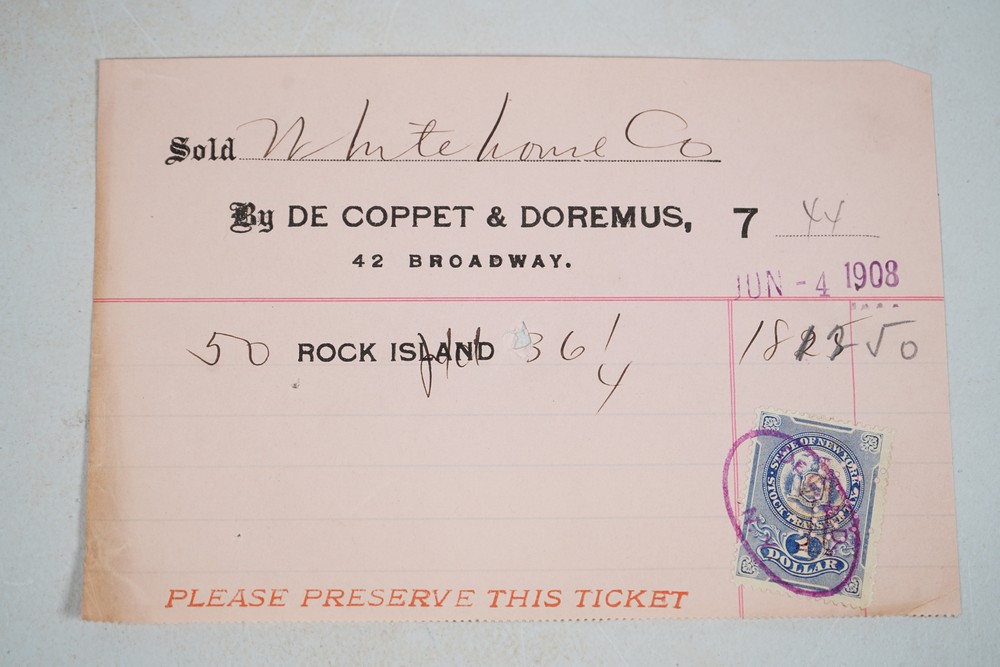 Sold Whitehouse Co
By DE COPPET & DOREMUS, 7 44
42 BROADWAY.
JUN - 4 1908
50 ROCK ISLAND pfd 36 1/4 1812 50
STATE OF NEW YORK
STOCK TRANSFER
1
DOLLAR
PLEASE PRESERVE THIS TICKET